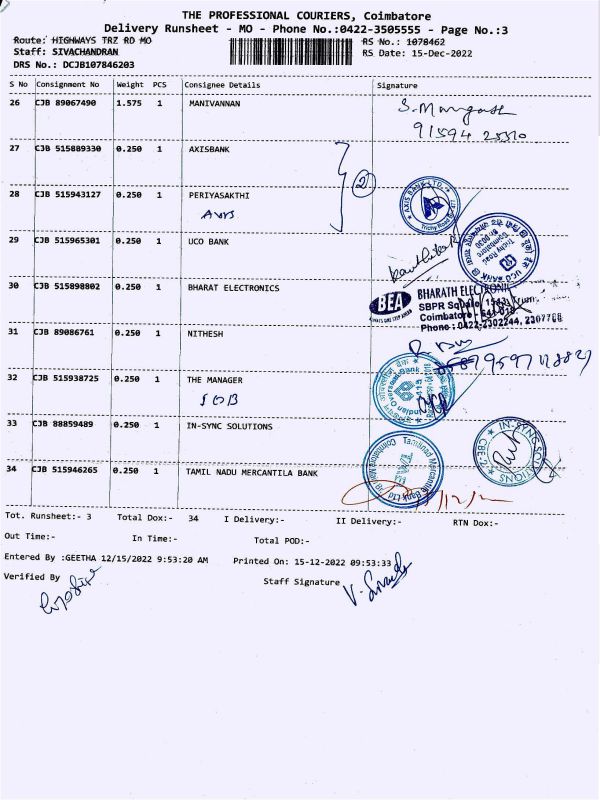 THE PROFESSIONAL COURIERS, Coimbatore
Delivery Runsheet - MO - Phone No.:0422-3505555 - Page No.:3
Route: HIGHWAYS TRZ RD MO
RS No.: 1078462
Staff: SIVACHANDRAN
RS Date: 15-Dec-2022
DRS No.: DCJB107846203
S No Consignment No Weight PCS Consignee Details Signature
26 CJB 89067490 1.575 1 MANIVANNAN
27 CJB 515889330 0.250 1 AXISBANK
2
28 CJB 515943127 0.250 1 PERIYASAKTHI
AXIS BANK LTD.
29 CJB 515965301 0.250 1 UCO BANK
UCO BANK
Trichy Road
Coimbatore
30 CJB 515898802 0.250 1 BHARAT ELECTRONICS
BEA
BHARATH ELECTRONIC
SBPR Square, 1543, Trichy
Coimbatore - 641 018
Phone : 0422-2302244, 2307788
31 CJB 89086761 0.250 1 NITHESH
32 CJB 515938725 0.250 1 THE MANAGER
IOB
Indian Overseas Bank
33 CJB 88859489 0.250 1 IN-SYNC SOLUTIONS
IN-SYNC SOLUTIONS
CBE-2
34 CJB 515946265 0.250 1 TAMIL NADU MERCANTILA BANK
Tamilnad Mercantile Bank Ltd
Tot. Runsheet:- 3 Total Dox:- 34 I Delivery:- II Delivery:- RTN Dox:-
Out Time:- In Time:- Total POD:-
Entered By :GEETHA 12/15/2022 9:53:20 AM Printed On: 15-12-2022 09:53:33
Verified By Staff Signature